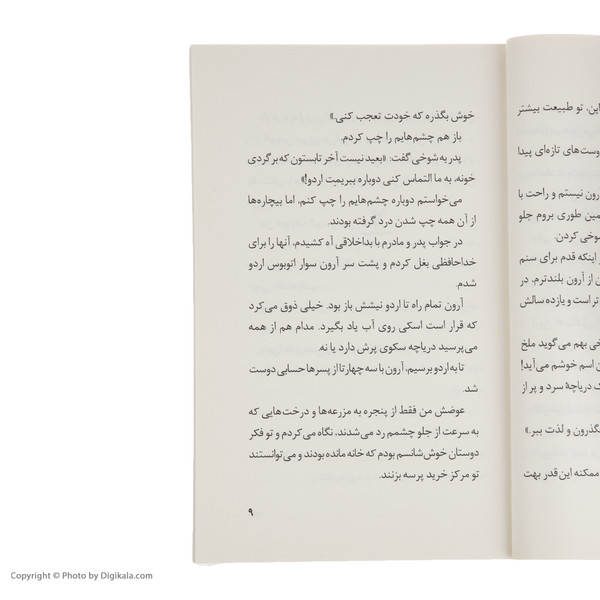 این، تو طبیعت بیشتر
دوست‌های تازه‌ای پیدا
رون نیستم و راحت با
مین طوری بروم جلو
شوخی کردن.
اینکه قدم برای سنم
ن از آرون بلندترم، در
تر است و یازده سالش
خی بهم می‌گوید ملخ
ن اسم خوشم می‌آید!
ک دریاچهٔ سرد و پر از
بگذرون و لذت ببر.»
ممکنه این قدر بهت
خوش بگذره که خودت تعجب کنی.»
باز هم چشم‌هایم را چپ کردم.
پدر به شوخی گفت: «بعید نیست آخر تابستون که برگردی
خونه، به ما التماس کنی دوباره ببریمت اردو!»
می‌خواستم دوباره چشم‌هایم را چپ کنم، اما بیچاره‌ها
از آن همه چپ شدن درد گرفته بودند.
در جواب پدر و مادرم با بداخلاقی آه کشیدم، آنها را برای
خداحافظی بغل کردم و پشت سر آرون سوار اتوبوس اردو
شدم.
آرون تمام راه تا اردو نیشش باز بود. خیلی ذوق می‌کرد
که قرار است اسکی روی آب یاد بگیرد. مدام هم از همه
می‌پرسید دریاچه سکوی پرش دارد یا نه.
تا به اردو برسیم، آرون با سه چهار تا از پسرها حسابی دوست
شد.
عوضش من فقط از پنجره به مزرعه‌ها و درخت‌هایی که
به سرعت از جلو چشمم رد می‌شدند، نگاه می‌کردم و تو فکر
دوستان خوش‌شانسم بودم که خانه مانده بودند و می‌توانستند
تو مرکز خرید پرسه بزنند.
۹
Copyright © Photo by Digikala.com